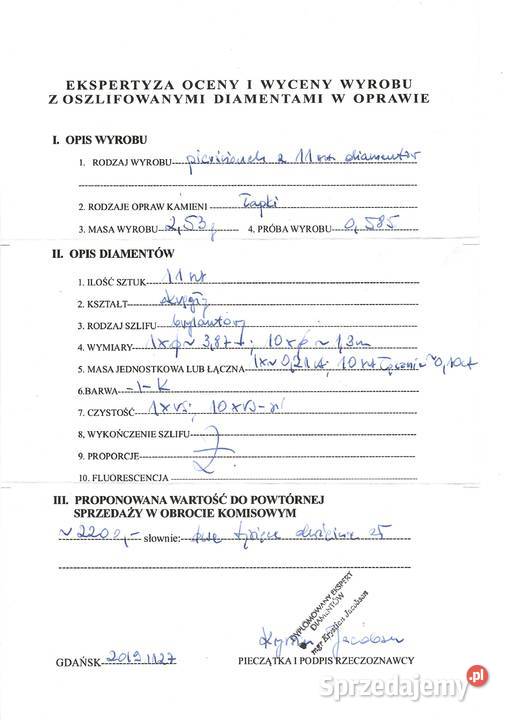 EKSPERTYZA OCENY I WYCENY WYROBU
Z OSZLIFOWANYMI DIAMENTAMI W OPRAWIE
I. OPIS WYROBU
1. RODZAJ WYROBU pierścionek z 11 szt diamentów
2. RODZAJE OPRAW KAMIENI łapki
3. MASA WYROBU 2,53g 4. PRÓBA WYROBU 0,585
II. OPIS DIAMENTÓW
1. ILOŚĆ SZTUK 11 szt
2. KSZTAŁT okrągły
3. RODZAJ SZLIFU brylantowy
4. WYMIARY 1xφ~3,87 ; 10xφ~1,3m
5. MASA JEDNOSTKOWA LUB ŁĄCZNA 1x~0,21ct; 10szt łącznie ~0,10ct
6.BARWA I-K
7. CZYSTOŚĆ 1xvs; 10xvs-si
8, WYKOŃCZENIE SZLIFU
9. PROPORCJE
10. FLUORESCENCJA
III. PROPONOWANA WARTOŚĆ DO POWTÓRNEJ
SPRZEDAŻY W OBROCIE KOMISOWYM
~2200,- słownie: dwa tysiące dwieście zł
DYPLOMOWANY EKSPERT
DIAMENTÓW
mgr Krystian Jacobson
GDAŃSK 2019 1127 PIECZĄTKA I PODPIS RZECZOZNAWCY
Sprzedajemy.pl